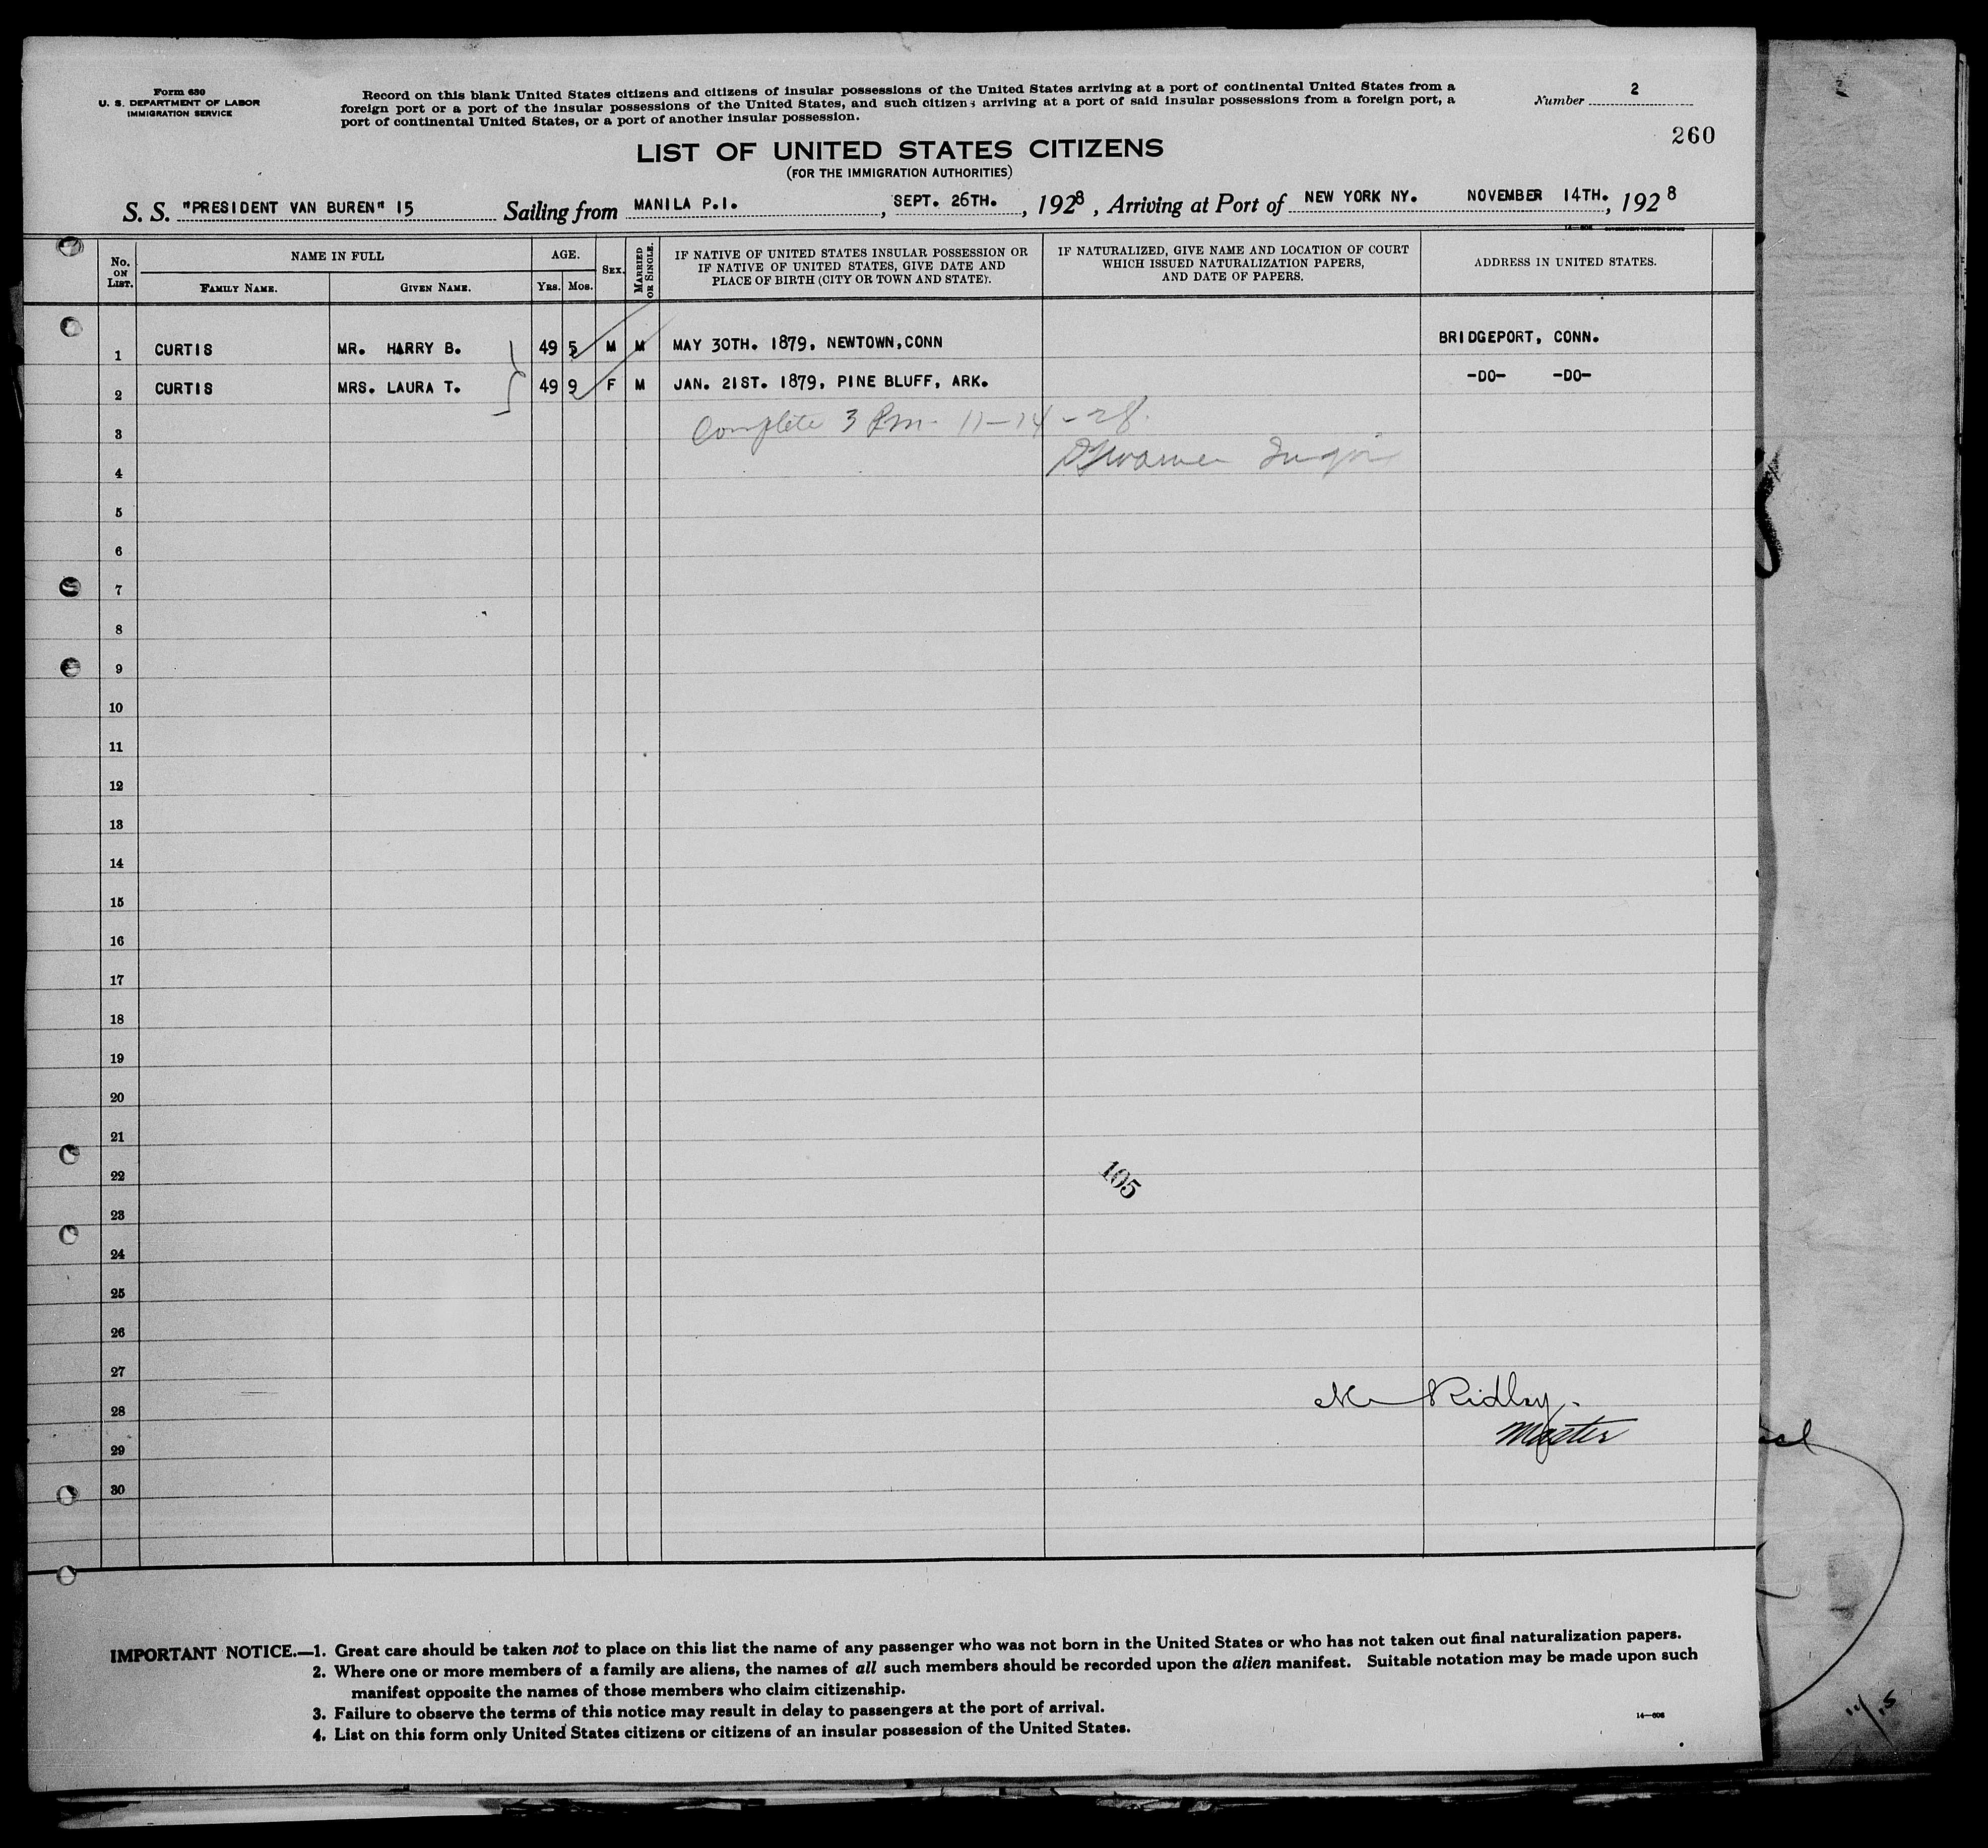 Form 630
U. S. DEPARTMENT OF LABOR
IMMIGRATION SERVICE
Record on this blank United States citizens and citizens of insular possessions of the United States arriving at a port of continental United States from a
foreign port or a port of the insular possessions of the United States, and such citizens arriving at a port of said insular possessions from a foreign port, a
port of continental United States, or a port of another insular possession.
Number 2
260
LIST OF UNITED STATES CITIZENS
(FOR THE IMMIGRATION AUTHORITIES)
S. S. "PRESIDENT VAN BUREN" 15 Sailing from MANILA P.I. , SEPT. 26TH. , 1928 , Arriving at Port of NEW YORK NY. NOVEMBER 14TH. , 1928
No. ON LIST.
NAME IN FULL
FAMILY NAME. GIVEN NAME.
AGE.
YRS. MOS.
SEX.
MARRIED OR SINGLE.
IF NATIVE OF UNITED STATES INSULAR POSSESSION OR
IF NATIVE OF UNITED STATES, GIVE DATE AND
PLACE OF BIRTH (CITY OR TOWN AND STATE).
IF NATURALIZED, GIVE NAME AND LOCATION OF COURT
WHICH ISSUED NATURALIZATION PAPERS,
AND DATE OF PAPERS.
ADDRESS IN UNITED STATES.
1 CURTIS MR. HARRY B. 49 5 M M MAY 30TH. 1879, NEWTOWN,CONN BRIDGEPORT, CONN.
2 CURTIS MRS. LAURA T. 49 9 F M JAN. 21ST. 1879, PINE BLUFF, ARK. -DO- -DO-
3 Complete 3 Pm. 11-14-28.
4
5
6
7
8
9
10
11
12
13
14
15
16
17
18
19
20
21
22
105
23
24
25
26
27
Ridley.
28
Master
29
30
IMPORTANT NOTICE.—1. Great care should be taken not to place on this list the name of any passenger who was not born in the United States or who has not taken out final naturalization papers.
2. Where one or more members of a family are aliens, the names of all such members should be recorded upon the alien manifest. Suitable notation may be made upon such
manifest opposite the names of those members who claim citizenship.
3. Failure to observe the terms of this notice may result in delay to passengers at the port of arrival.
4. List on this form only United States citizens or citizens of an insular possession of the United States.
14—606